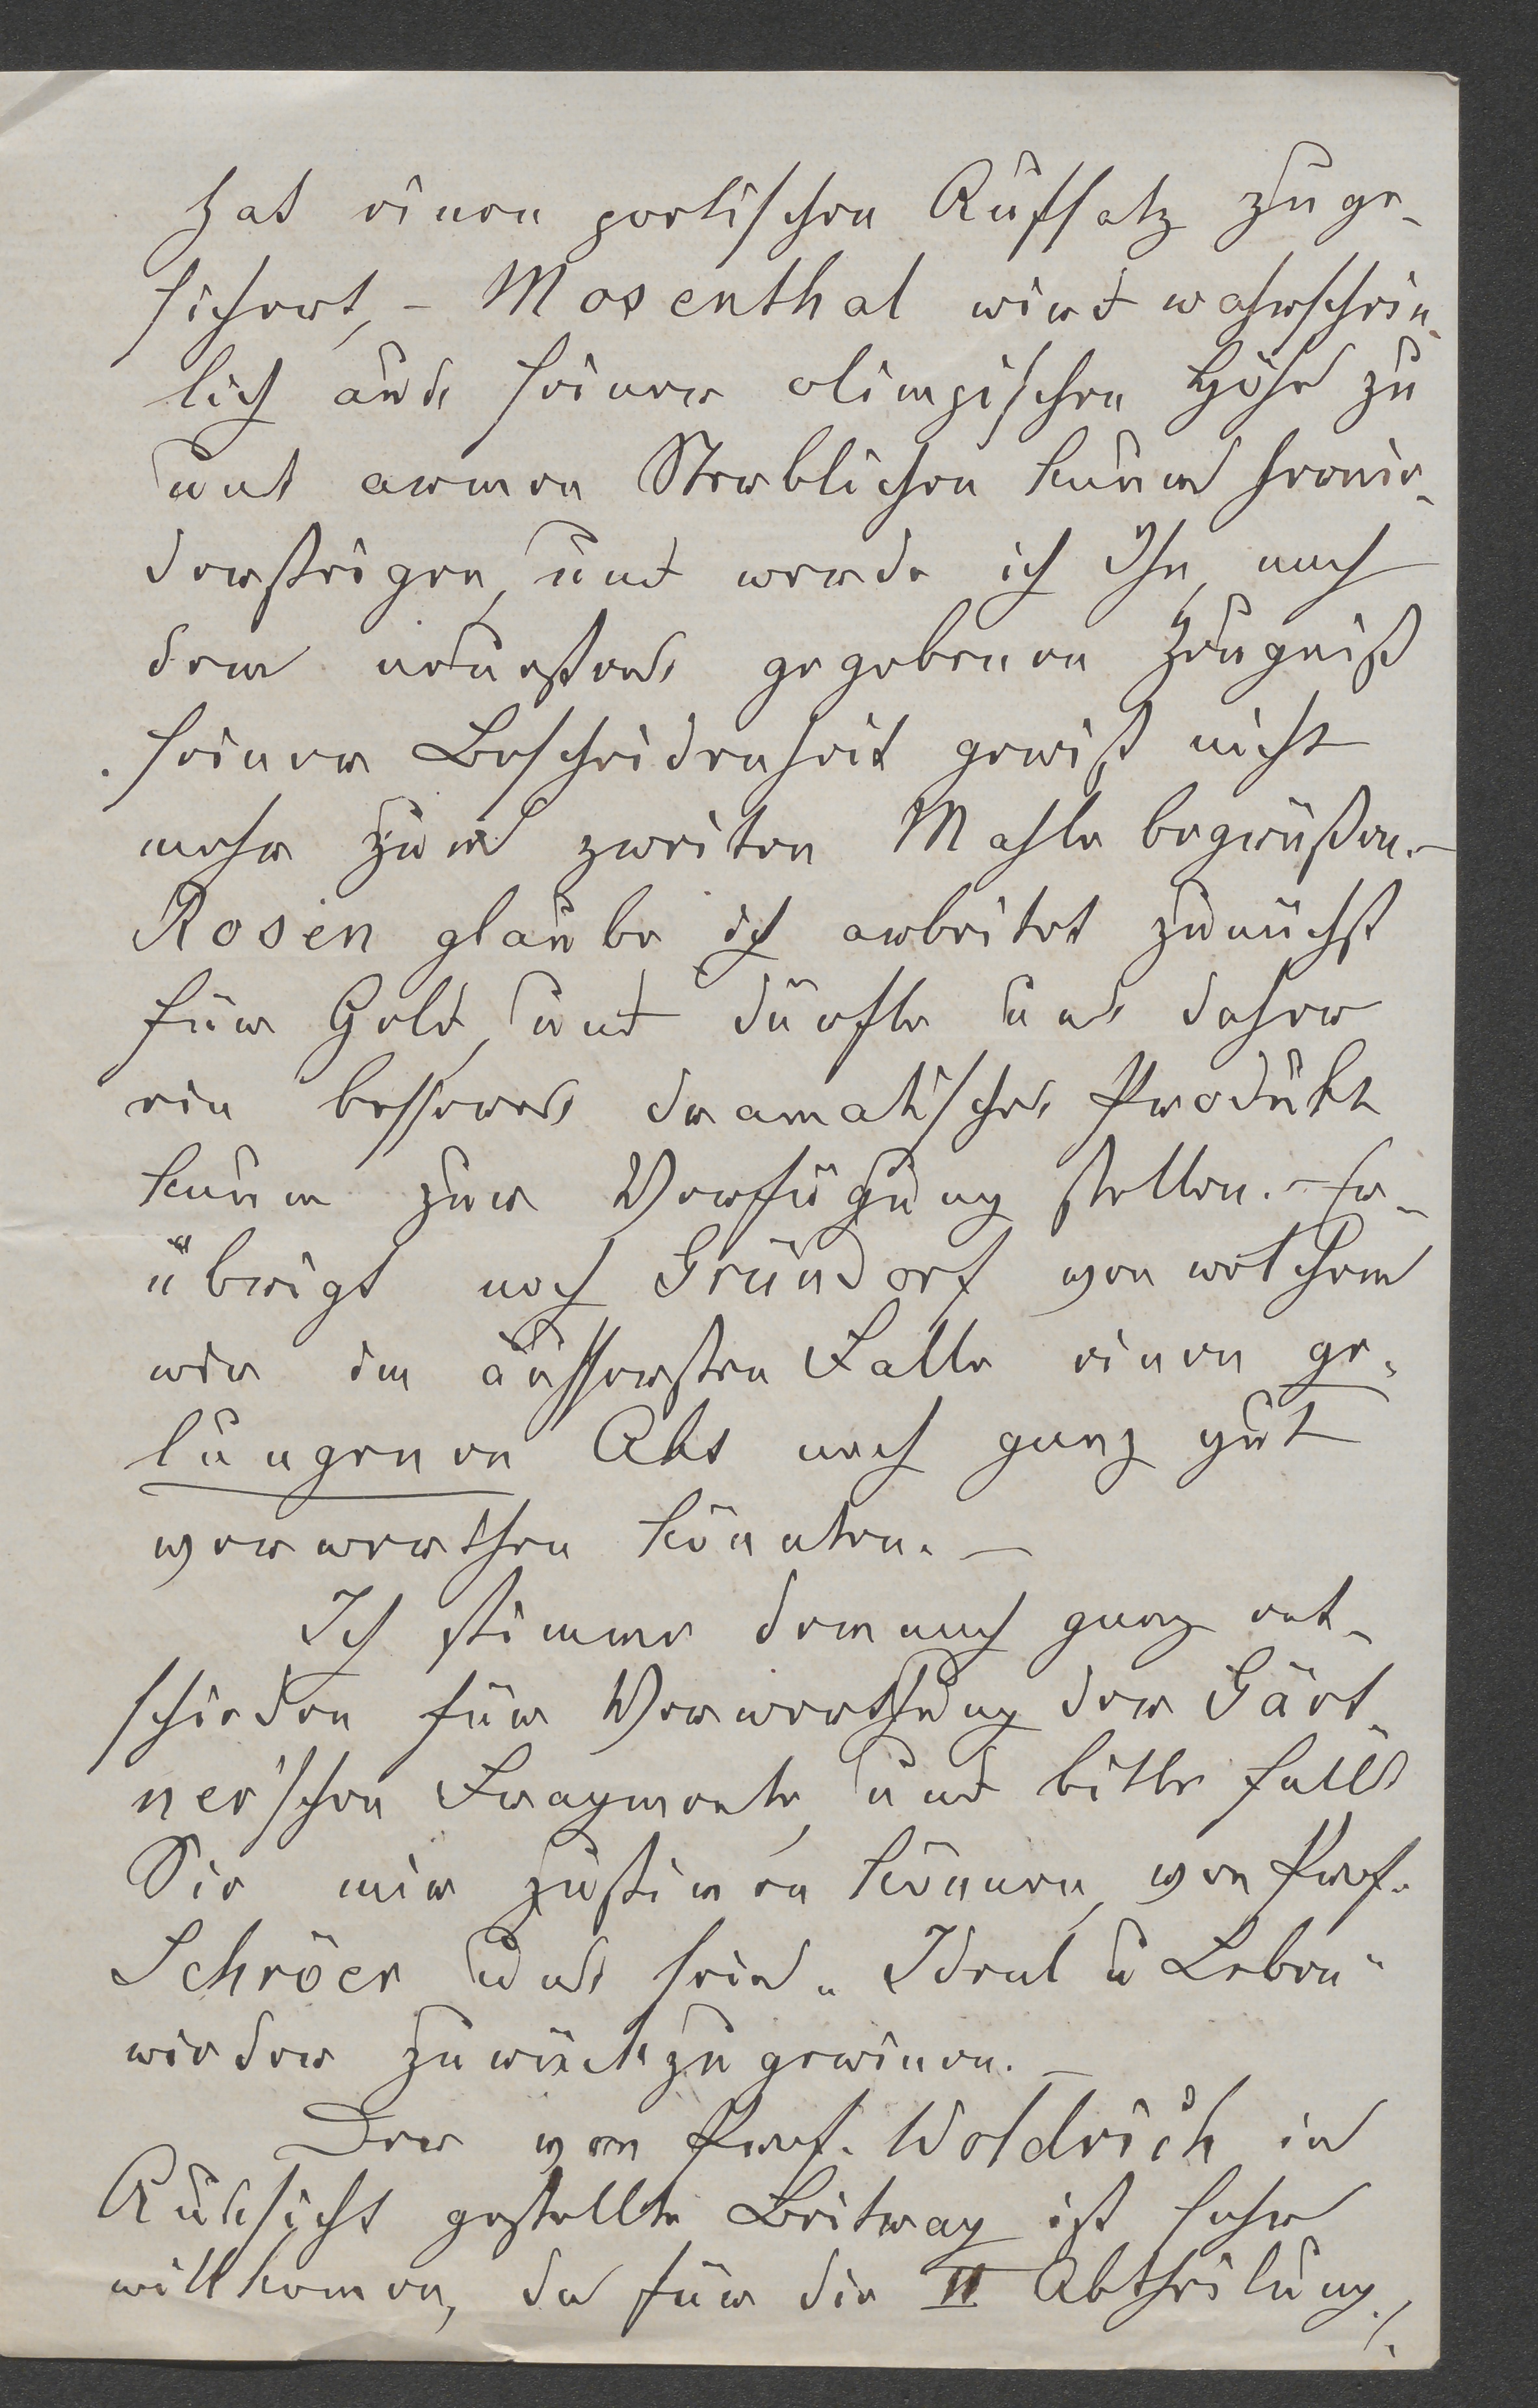 hat einen poetischen Aufsatz zuge-
sichert, – Mosenthal wird wahrschein-
lich aus seiner olimpischen Höhe zu
uns armen Sterblichen kaum hernie-
dersteigen, und werde ich Ihn, nach
dem neuestens gegebenen Zeugniß
seiner Bescheidenheit gewiß nicht
mehr zum zweiten Mahle begrüßen. –
Rosen glaube ich arbeitet zunächst
für Geld, und dürfte uns daher
ein besseres dramatisches Produkt
kaum zur Verfügung stellen. – Er-
übrigt noch Gründorf von welchem
wir im äussersten Falle einen ge-
lungenen Akt noch ganz gut
verwerthen könnten. –
Ich stimme demnach ganz ent-
schieden für Verwerthung der Gärt-
ner'schen Fragmente, und bitte falls
Sie mir zustimen können, von Prof.
Schröer uns sein „Ideal u Leben“
wieder zurückzugewinen. –
Der von Prof. Woldrich in
Aussicht gestellte Beitrag ist sehr
willkomen, da für die II Abtheilung ./.